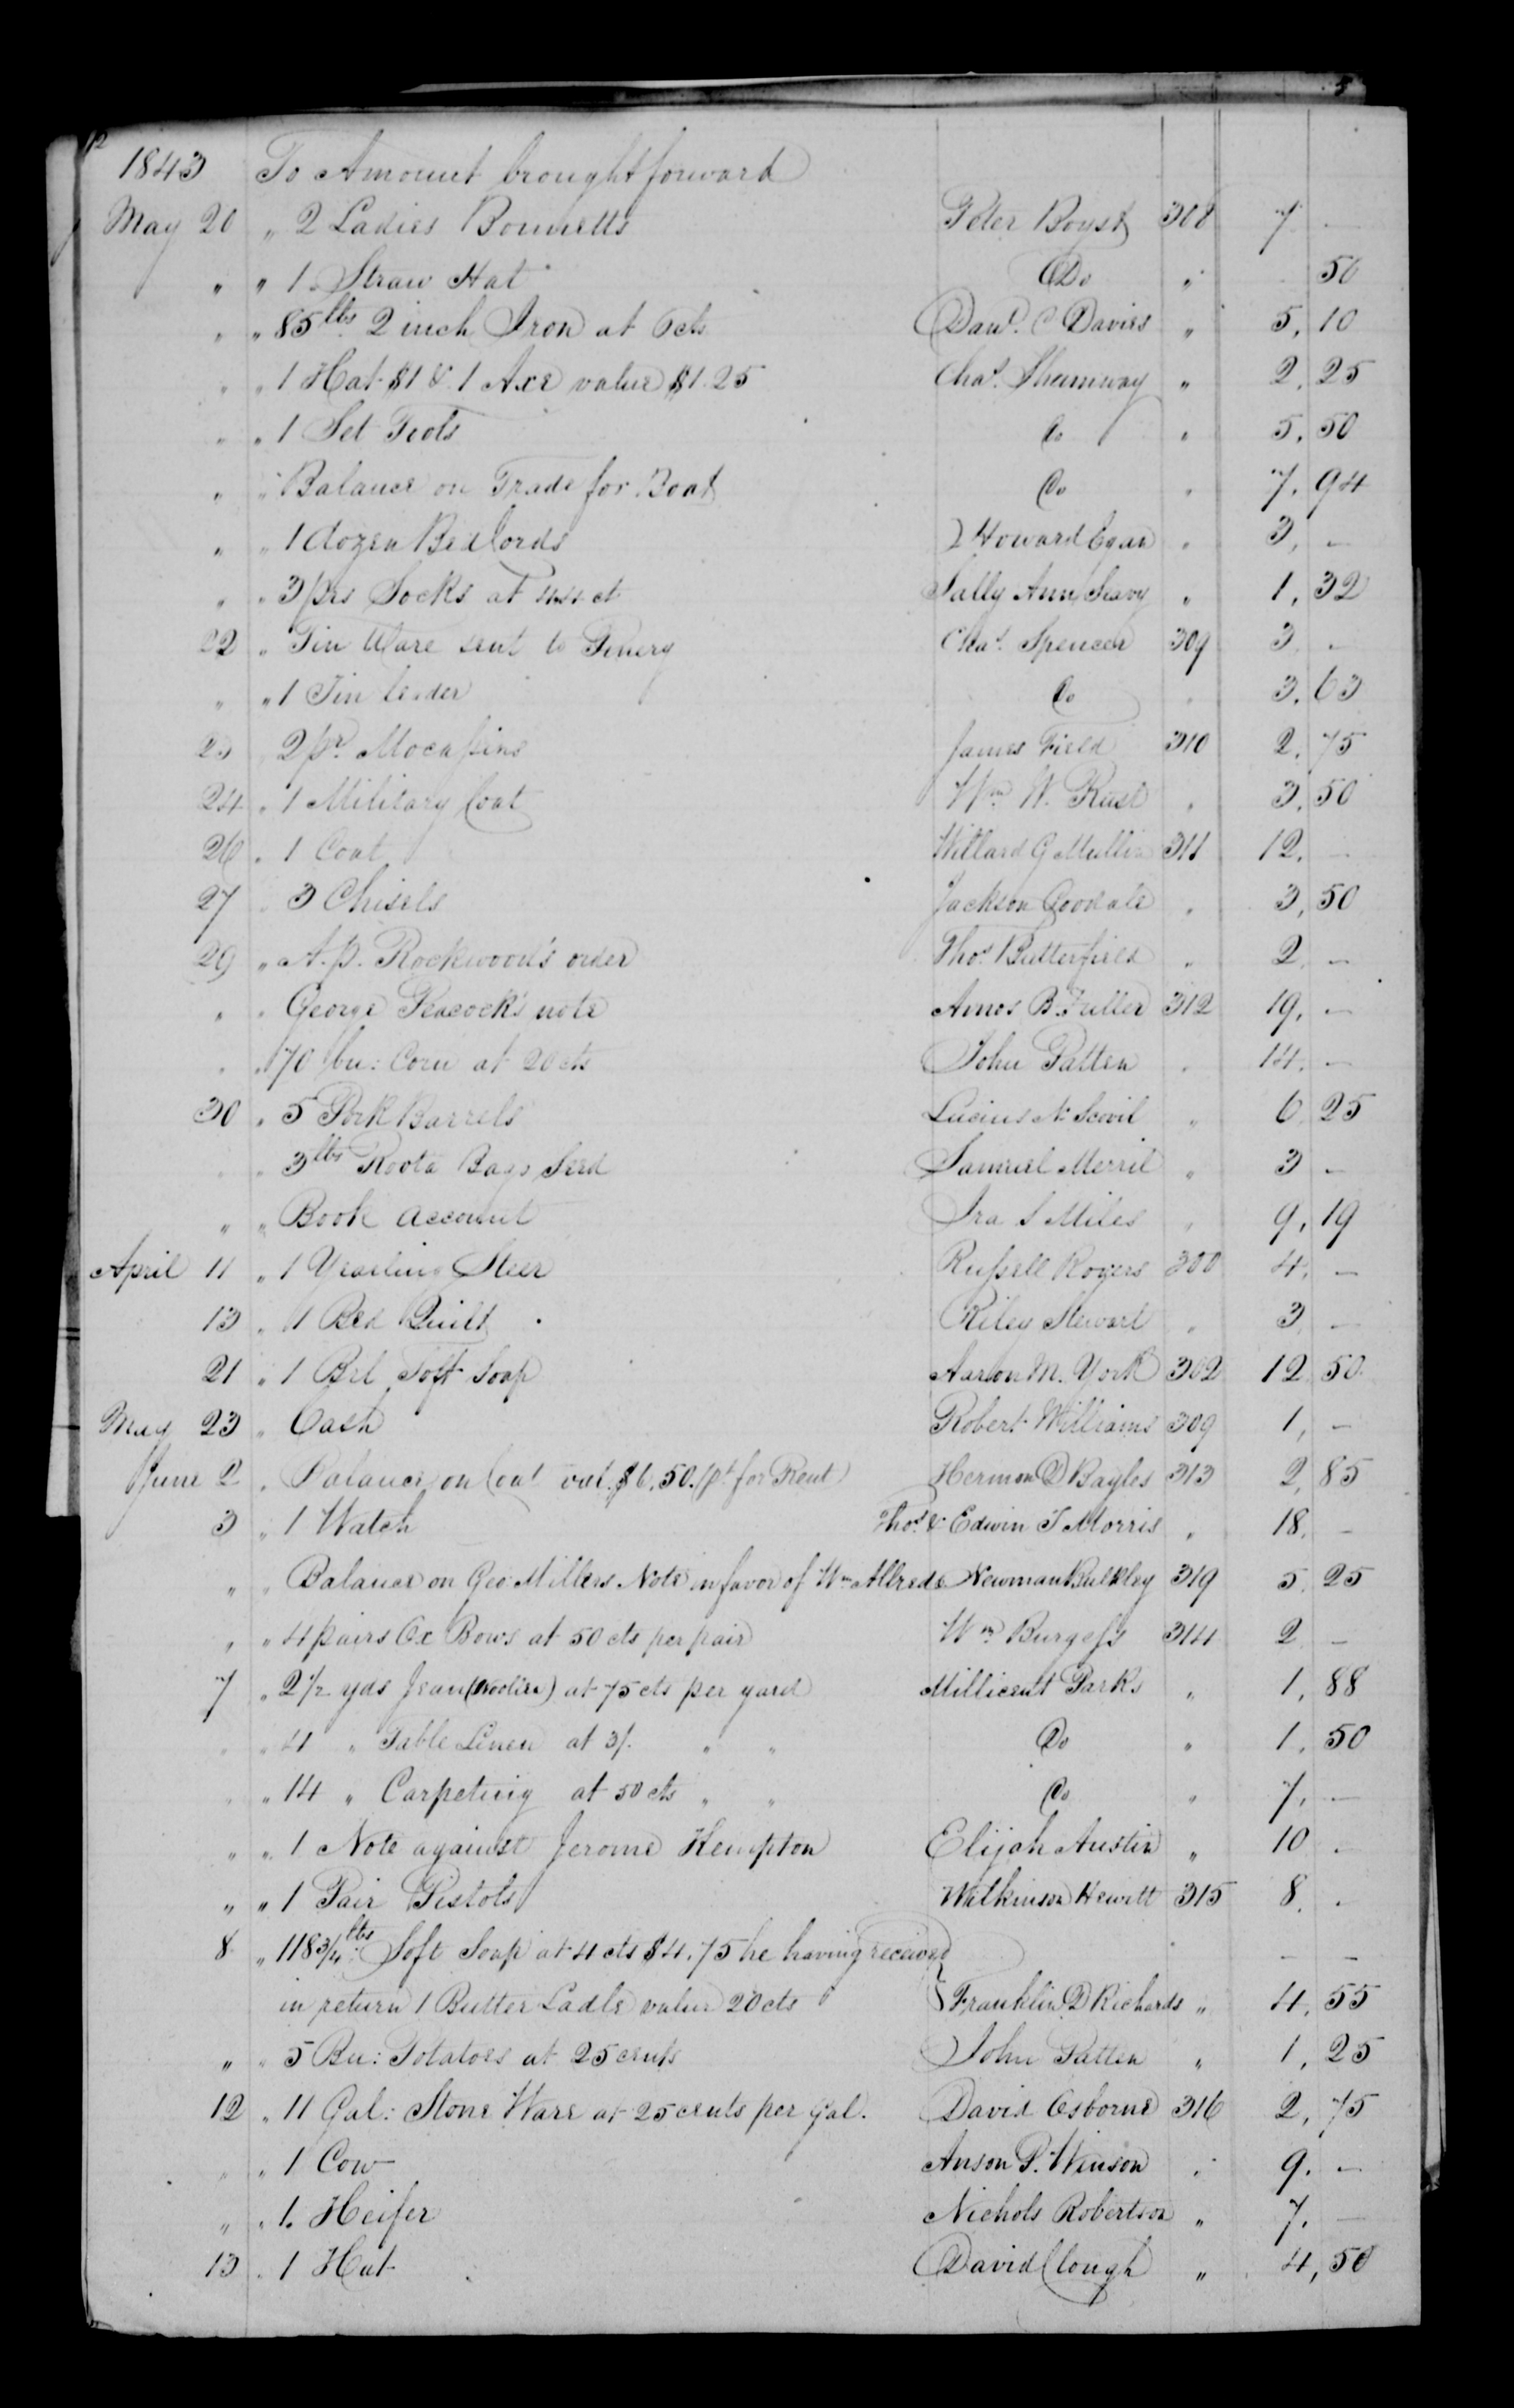 1843 To Amount brought forward
May 20 " 2 Ladies Bonnetts Peter Boyst 308 7 —
" " 1 Straw Hat Do " 50
" " 85 lbs 2 inch Iron at 6 cts Danl. C Davies " 5, 10
" " 1 Hat $1 & 1 Axe value $1.25 Chas. Shumway " 2, 25
" " 1 Set Tools Do " 5, 50
" " Balance on Trade for Boat Do " 7, 94
" " 1 dozen Bed Cords Howard Egan " 3, —
" " 3 prs Socks at 44 ct Sally Ann Seavy " 1, 32
22 " Tin Ware sent to Chas. Spencer 309 3 —
" " 1 Tin Do " 3, 63
23 " 2 pr. Mocassins James Field 310 2, 75
24 " 1 Military Coat Wm W. Rust " 3, 50
26 " 1 Coat Willard G Mullin 311 12, —
27 " 3 Chisels Jackson Goodale " 3, 50
29 " A. p. Rockwood's order Thos. Butterfield " 2 —
" " George Peacock's note Amos B. Fuller 312 19, —
" " 70 bu: Corn at 20 cts John Patten " 14, —
30 " 5 Pork Barrels Lucius N. Scovil " 6 25
" " 3 lbs Roota Baga Seed Samuel Merril " 3 —
" " Book account Ira S Miles " 9, 19
April 11 " 1 Yearling Steer Russell Rogers 300 4, —
13 " 1 Bed Quilt Riley Stewart " 3 —
21 " 1 Brl Soft Soap Aaron M. York 302 12 50
May 23 " Cash Robert Williams 309 1, —
June 2 " Balance on Coat val. $6.50. pt for Rent Hermon D Bayles 313 2, 85
3 " 1 Watch Thos. & Edwin T Morris " 18, —
" " Balance on Geo: Millers Note in favor of Wm Allred & Newman Bulkley 319 5, 25
" " 4 pairs Ox Bows at 50 cts per pair Wm Burgess 314 2 —
7 " 2 1/2 yds Jean (Woolen) at 75 cts per yard Millicent Parks " 1, 88
" " 4 " Table Linen at 3/. " " Do " 1, 50
" " 14 " Carpeting at 50 cts " " Do " 7, —
" " 1 Note against Jerome Kempton Elijah Austin " 10 .
" " 1 Pair Pistols Wilkinson Hewitt 315 8, .
8 " 118 3/4 lbs: Soft Soap at 4 cts $4.75 he having received — —
in return 1 Butter Ladle value 20 cts } Franklin D Richards " 4, 55
" " 5 Bu: Potatoes at 25 cents John Patten " 1, 25
12 " 11 Gal: Stone Ware at 25 cents per Gal. David Osborne 316 2, 75
" " 1 Cow Anson P. Winson " 9. —
" " 1. Heifer Nichols Robertson " 7. —
13 " 1 Hat David Clough " 4, 50